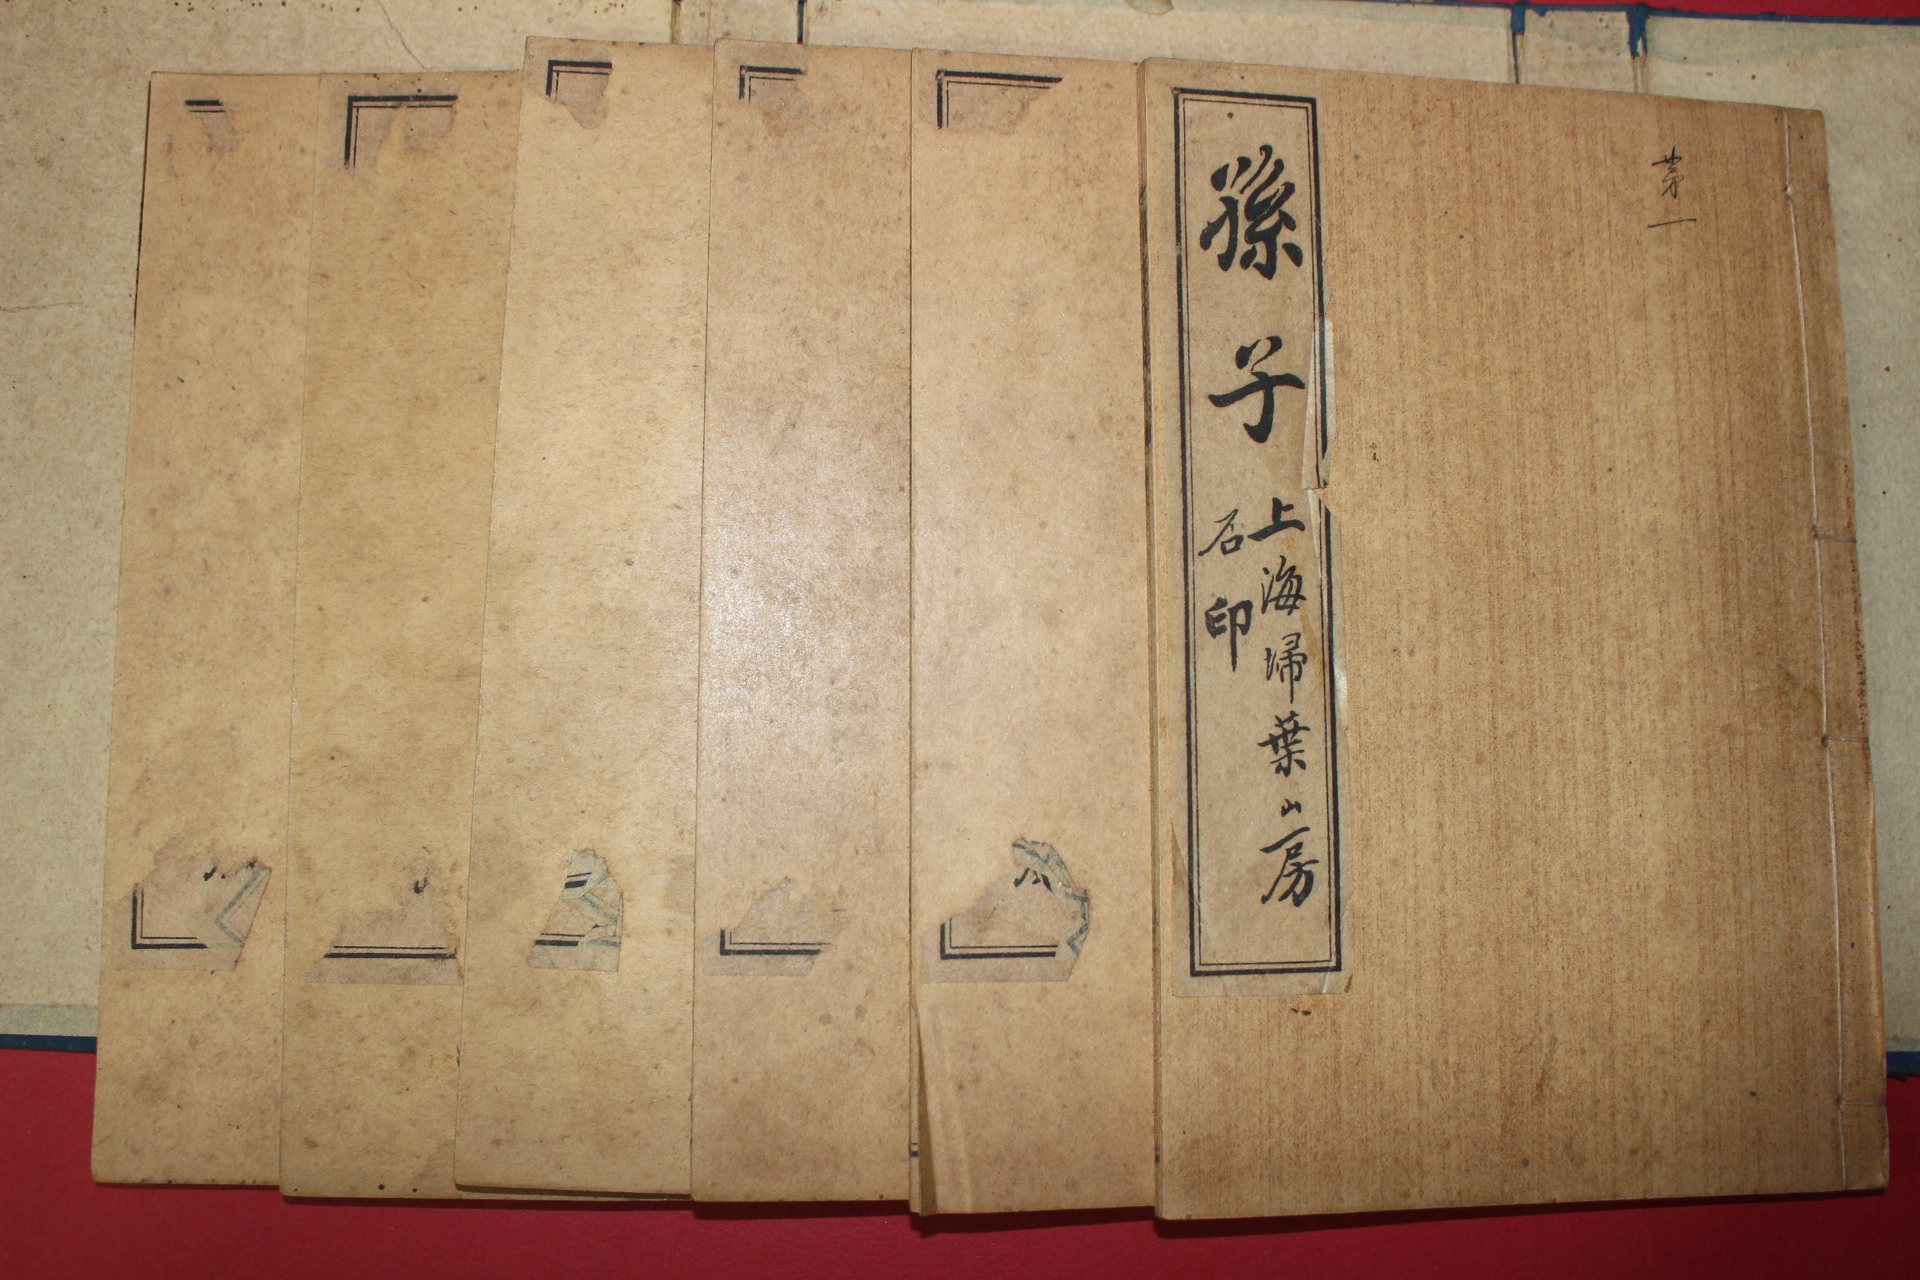 第一
孫子
上海埽葉山房
石印